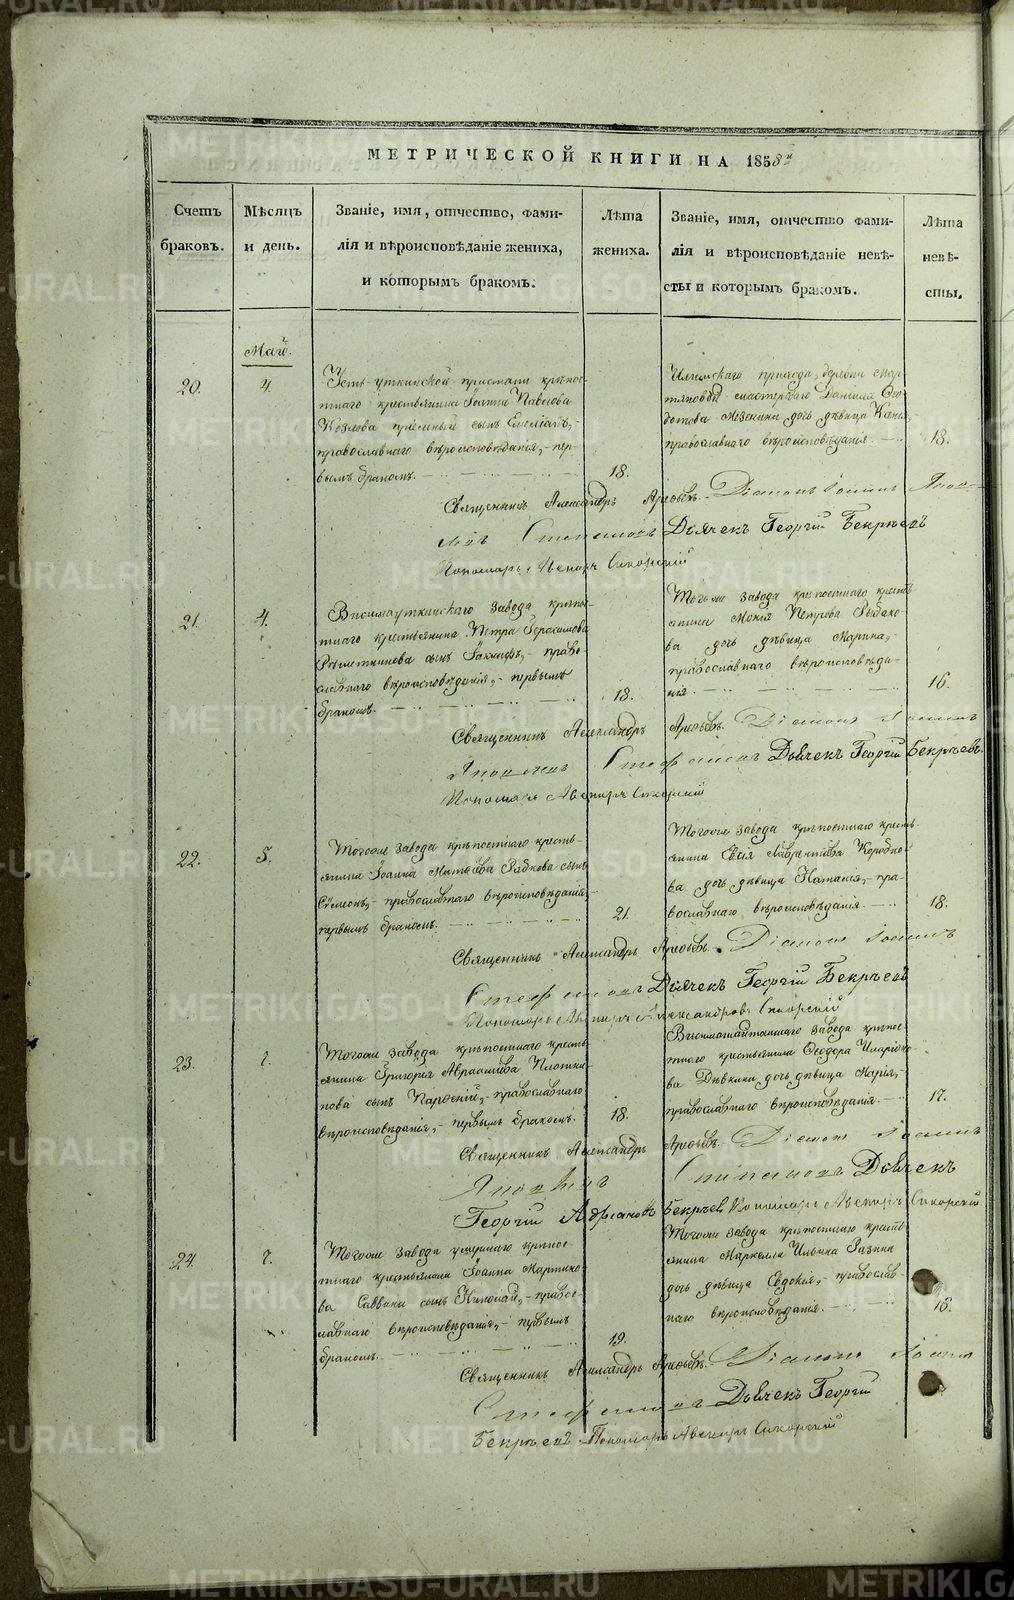 МЕТРИЧЕСКОЙ КНИГИ НА 1858й
Счетъ
браковъ.
Мѣсяцъ
и день.
Званіе, имя, отчество, фами-
лія и вѣроисповѣданіе жениха,
и которымъ бракомъ.
Лѣта
жениха.
Званіе, имя, отчество фами-
лія и вѣроисповѣданіе невѣ-
сты и которымъ бракомъ.
Лѣта
невѣ-
сты.
Маій.
20.
4
Усть-уткинской пристани крѣпос-
тнаго крестьянина Іоанна Павлова
Козлова пріемный сынъ
православнаго вѣроисповѣданія, пер-
вымъ бракомъ.
18.
прихода, деревни
Даніила Ѳео-
дотова дочь дѣвица
православнаго вѣроисповѣданія.
18.
Священникъ Александръ Діаконъ Іоаннъ
Дьячекъ Георгій Бекрѣевъ
Пономарь Авениръ Сикорскій
21.
4.
Висимоуткинскаго завода крѣпос-
тнаго крестьянина Петра Герасимова
сынъ Іакинфъ, право-
славнаго вѣроисповѣданія, первымъ
бракомъ.
18.
Тогоже завода крѣпостнаго кресть-
янина Мокія Петрова Рыбако-
ва дочь дѣвица Марина,
православнаго вѣроисповѣда-
нія.
16.
Священникъ Александръ Діаконъ Іоаннъ
Стефановъ Дьячекъ Георгій Бекрѣевъ.
Пономарь Авениръ Сикорскій
22.
5.
Тогоже завода крѣпостнаго кресть-
янина Іоанна Матѳѣева Рябкова сынъ
Сѵмеонъ, православнаго вѣроисповѣданія,
первымъ бракомъ.
21.
Тогоже завода крѣпостнаго кресть-
янина Лаврентіева Коробко-
ва дочь дѣвица Наталія, пра-
вославнаго вѣроисповѣданія.
18.
Священникъ Александръ Діаконъ Іоаннъ
Стефановъ Дьячекъ Георгій Бекрѣевъ
Пономарь Авениръ Александровъ Сикорскій
23.
7
Тогоже завода крѣпостнаго кресть-
янина Григорія Авраамова Плотни-
кова сынъ православнаго
вѣроисповѣданія, первымъ бракомъ.
18.
Висимошайтанскаго завода крѣпос-
тнаго крестьянина Ѳеодора Иларіоно-
ва дочь дѣвица Марія,
православнаго вѣроисповѣданія.
17.
Священникъ Александръ Діаконъ Іоаннъ
Яковлевъ Степановъ Дьячекъ
Георгій Адріановъ Бекрѣев Пономарь Авениръ Сикорскій
24.
7.
Тогоже завода умершаго крѣпос-
тнаго крестьянина Іоанна Мартино-
ва Саввина сынъ Николай, правос-
лавнаго вѣроисповѣданія, первымъ
бракомъ.
19.
Тогоже завода крѣпостнаго кресть-
янина Маркелла Ильина Разина
дочь дѣвица Евдокія, православ-
наго вѣроисповѣданія.
Священникъ Александръ Діаконъ Іоаннъ
Стефановъ Дьячекъ Георгій
Бекрѣевъ Пономарь Авениръ Сикорскій
METRIKI.GASO-URAL.RU